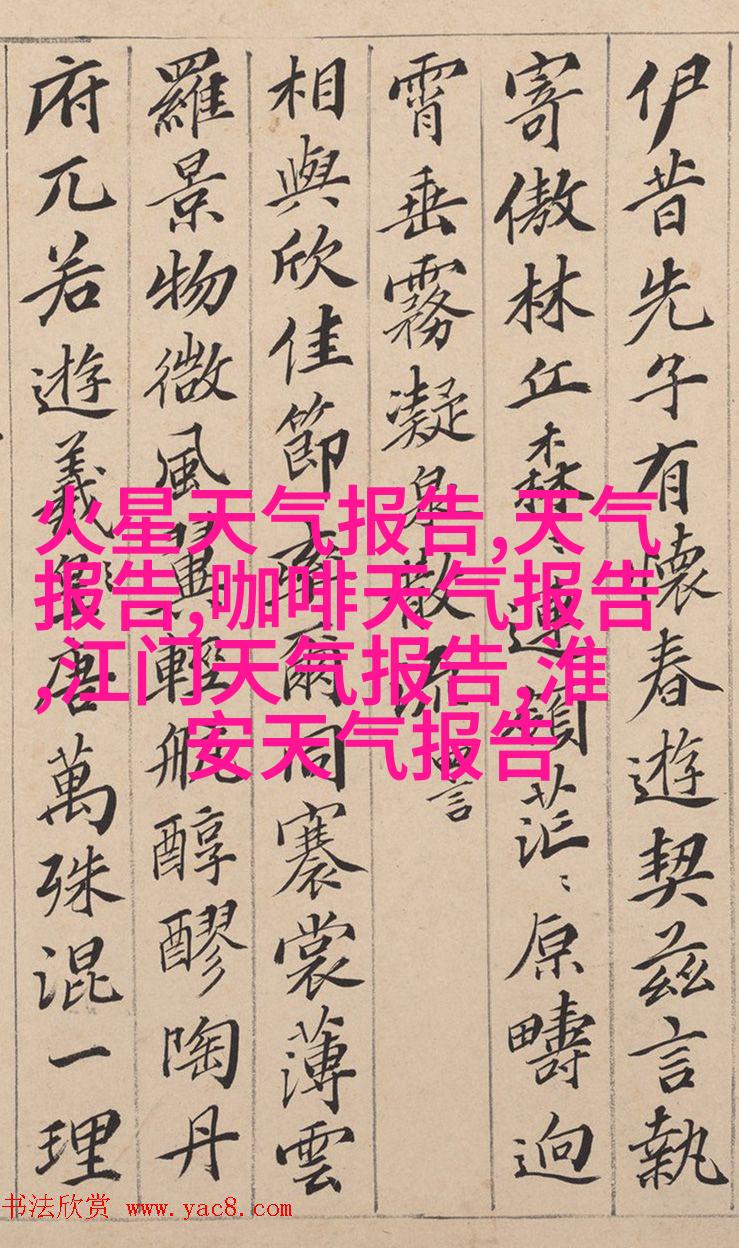 伊昔先子有懷春遊契茲言執
寄傲林丘森〻連領茫〻原疇迥
霄垂霧凝泉散流 言
相與欣佳節率爾同褰裳薄雲
羅景物微風翼輕航醇醪陶丹
府兀若遊羲唐萬殊混一理
火星天气报告,天气
报告,咖啡天气报告
,江门天气报告,淮
安天气报告
书法欣赏 www.yac8.com